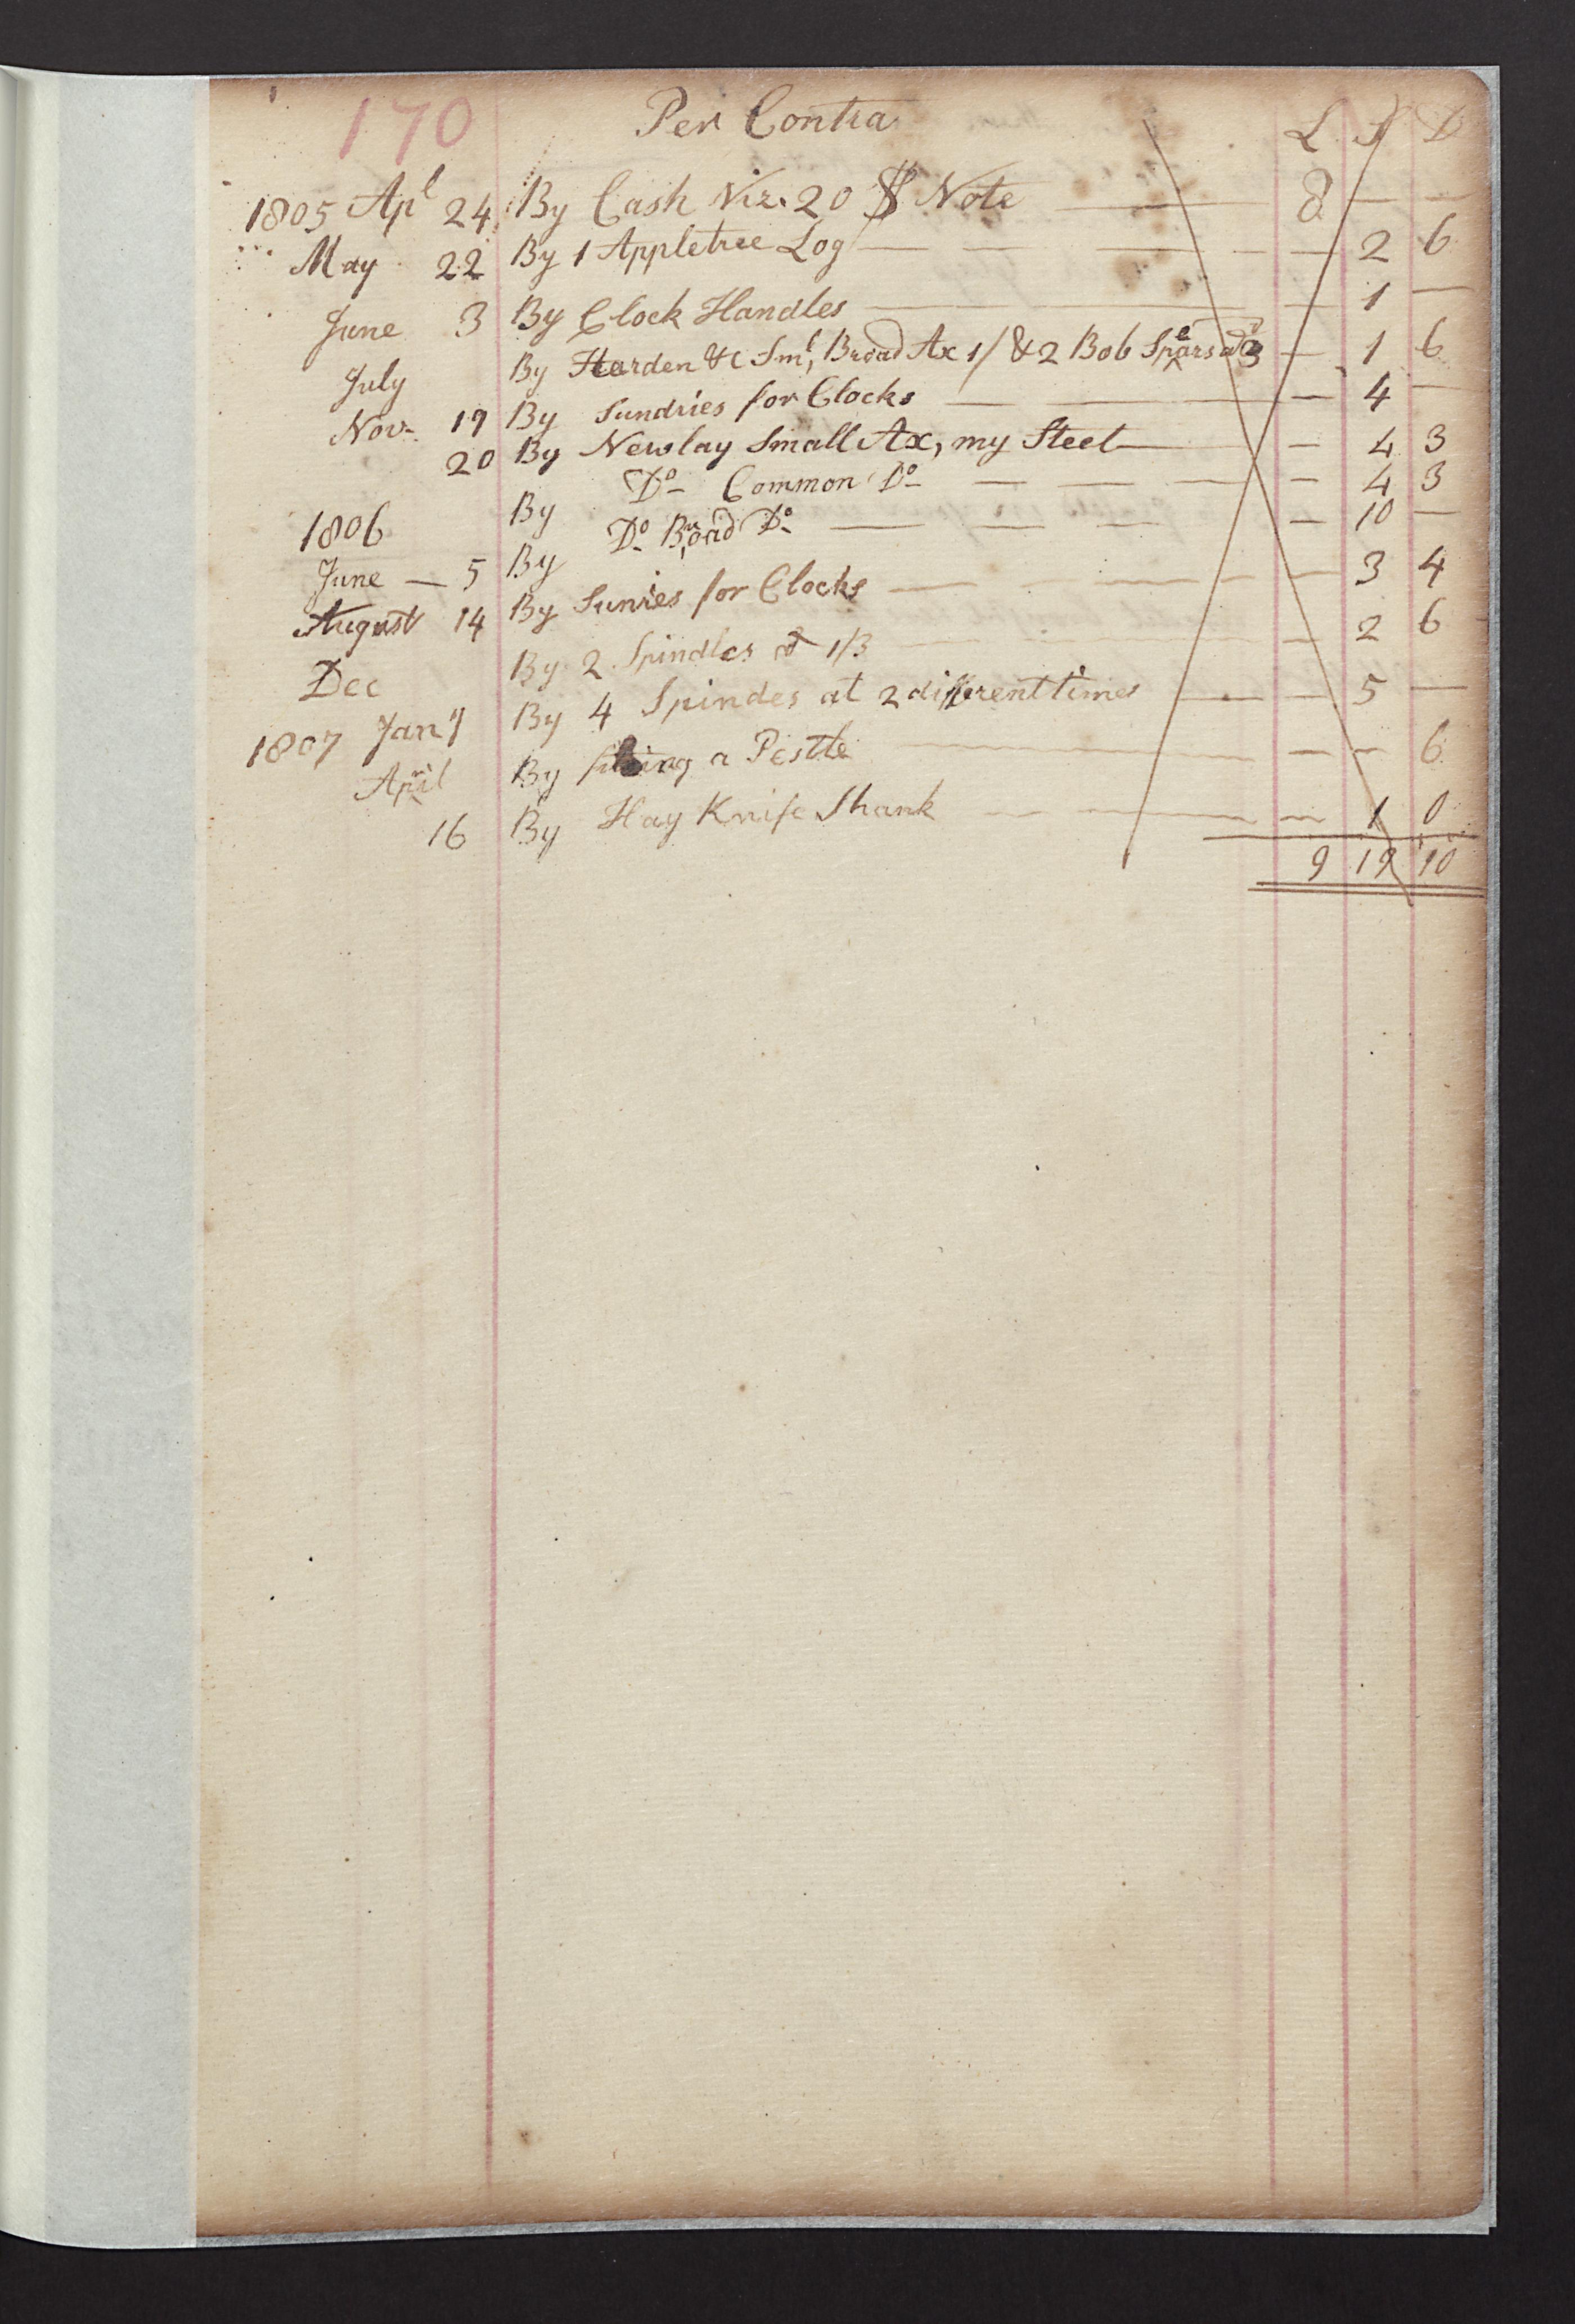 170 Per Contra L S D
1805 Apl 24 By Cash Viz. 20 $ Note — 8 — —
May 22 By 1 Appletree Log — — 2 6
June 3 By Clock Handles — — 1 —
July By Harden &c Sml, Broad Ax 1/ & 2 Bob Spears at 3 — 1 6
Nov. 19 By Sundries for Clocks — — 4 —
20 By Newlay Small Ax, my Steel — — 4 3
By Do Common Do — — 4 3
1806 By Do Broad Do — — 10 —
June — 5 By Sunries for Clocks — — 3 4
August 14 By 2 Spindles at 1/3 — — 2 6
Dec By 4 Spindes at 2 different times — — 5 —
1807 Jany By a Pestle — — — 6
April 16 By Hay Knife Shank — — 1 0
9 19 10